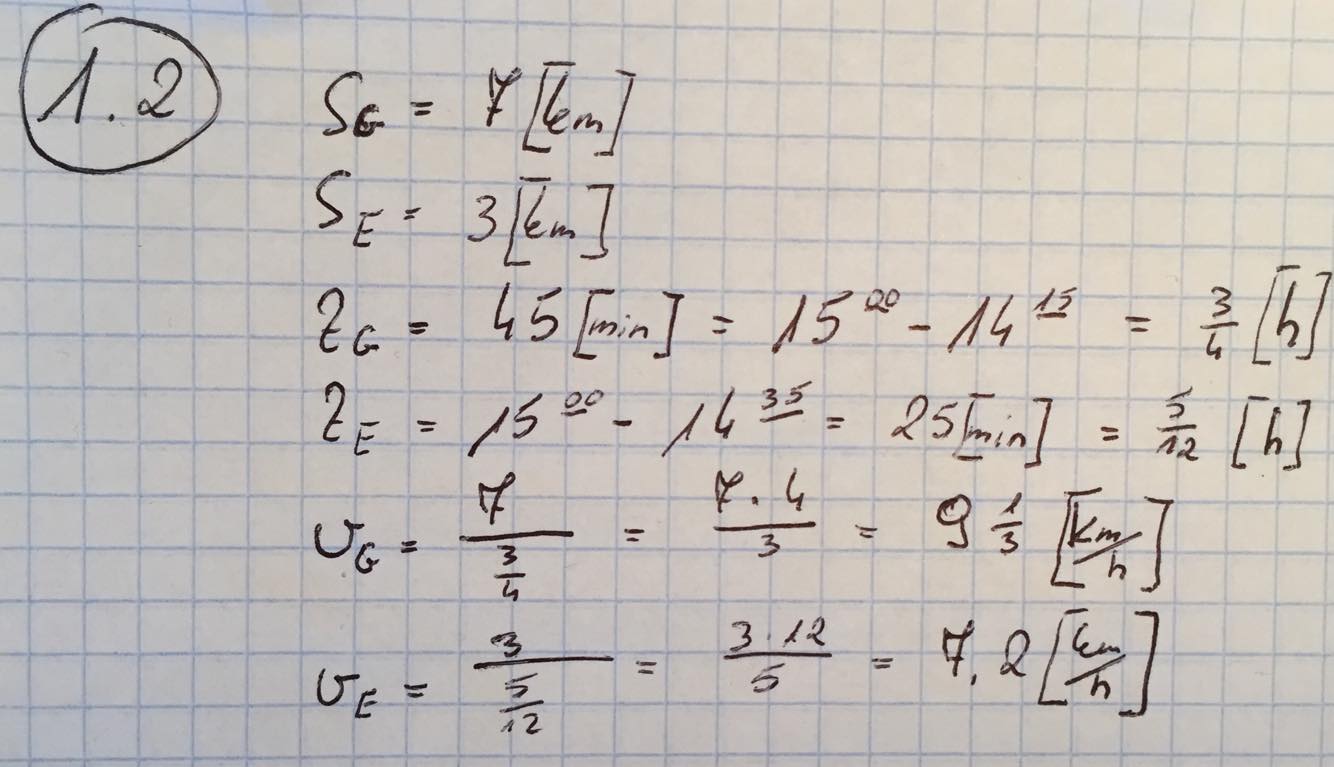 1.2
S_G = 7 [km]
S_E = 3 [km]
Z_G = 45 [min] = 15⁰⁰ - 14¹⁵ = 3/4 [h]
Z_E = 15⁰⁰ - 14³⁵ = 25 [min] = 5/12 [h]
v_G = 7/(3/4) = (7·4)/3 = 9 1/3 [km/h]
v_E = 3/(5/12) = (3·12)/5 = 7.2 [km/h]